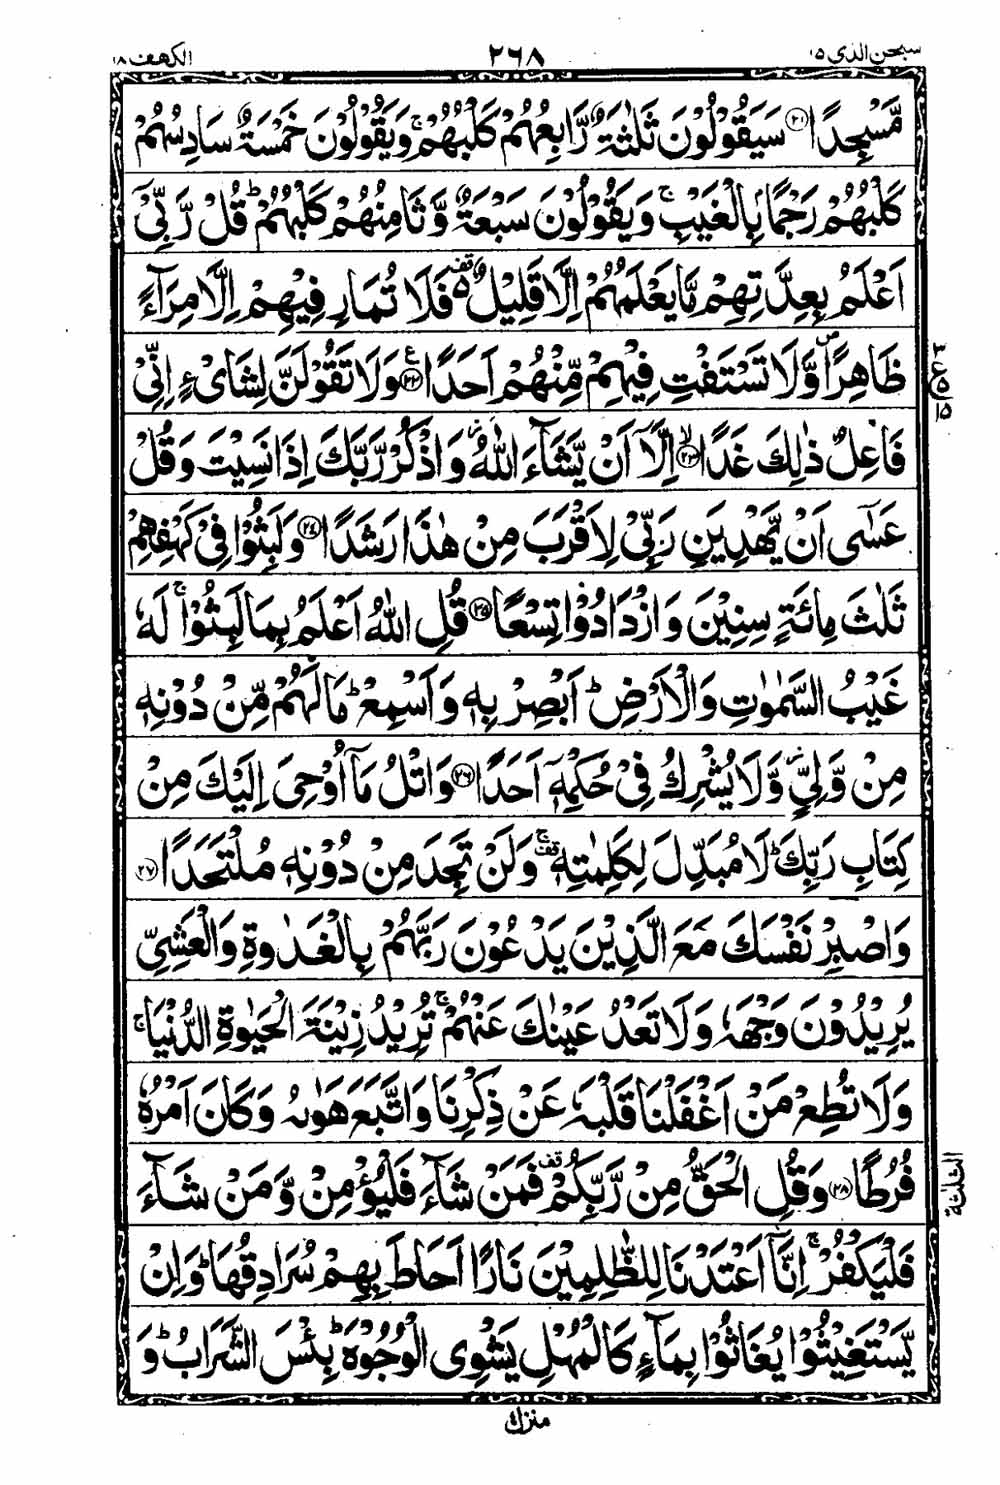 سبحن الذی ۱۵ ۲٦۸ الکھف ۱۸
مَّسْجِدًا ﴿۲۱﴾ سَيَقُوْلُوْنَ ثَلٰثَةٌ رَّابِعُهُمْ كَلْبُهُمْ ۚ وَيَقُوْلُوْنَ خَمْسَةٌ سَادِسُهُمْ
كَلْبُهُمْ رَجْمًا بِالْغَيْبِ ۚ وَيَقُوْلُوْنَ سَبْعَةٌ وَّثَامِنُهُمْ كَلْبُهُمْ ؕ قُلْ رَّبِّيْٓ
اَعْلَمُ بِعِدَّتِهِمْ مَّا يَعْلَمُهُمْ اِلَّا قَلِيْلٌ ۵ قف فَلَا تُمَارِ فِيْهِمْ اِلَّا مِرَآءً
ظَاهِرًا ص وَّلَا تَسْتَفْتِ فِيْهِمْ مِّنْهُمْ اَحَدًا ﴿۲۲﴾ ع وَلَا تَقُوْلَنَّ لِشَایْءٍ اِنِّيْ
۳ ع ۵ ۱۵
فَاعِلٌ ذٰلِكَ غَدًا ﴿۲۳﴾ ۙ اِلَّآ اَنْ يَّشَآءَ اللّٰهُ ۫ وَاذْكُرْ رَّبَّكَ اِذَا نَسِيْتَ وَقُلْ
عَسٰٓى اَنْ يَّهْدِيَنِ رَبِّيْ لِاَقْرَبَ مِنْ هٰذَا رَشَدًا ﴿۲۴﴾ وَلَبِثُوْا فِيْ كَهْفِهِمْ
ثَلٰثَ مِائَةٍ سِنِيْنَ وَازْدَادُوْا تِسْعًا ﴿۲۵﴾ قُلِ اللّٰهُ اَعْلَمُ بِمَا لَبِثُوْا ۚ لَهٗ
غَيْبُ السَّمٰوٰتِ وَالْاَرْضِ ؕ اَبْصِرْ بِهٖ وَاَسْمِعْ ؕ مَا لَهُمْ مِّنْ دُوْنِهٖ
مِنْ وَّلِيٍّ ۫ وَّلَا يُشْرِكُ فِيْ حُكْمِهٖٓ اَحَدًا ﴿۲٦﴾ وَاتْلُ مَآ اُوْحِيَ اِلَيْكَ مِنْ
كِتَابِ رَبِّكَ ؕ لَا مُبَدِّلَ لِكَلِمٰتِهٖ ۚ قف وَلَنْ تَجِدَ مِنْ دُوْنِهٖ مُلْتَحَدًا ﴿۲۷﴾
وَاصْبِرْ نَفْسَكَ مَعَ الَّذِيْنَ يَدْعُوْنَ رَبَّهُمْ بِالْغَدٰوةِ وَالْعَشِيِّ
يُرِيْدُوْنَ وَجْهَهٗ وَلَا تَعْدُ عَيْنٰكَ عَنْهُمْ ۚ تُرِيْدُ زِيْنَةَ الْحَيٰوةِ الدُّنْيَا ۚ
وَلَا تُطِعْ مَنْ اَغْفَلْنَا قَلْبَهٗ عَنْ ذِكْرِنَا وَاتَّبَعَ هَوٰىهُ وَكَانَ اَمْرُهٗ
فُرُطًا ﴿۲۸﴾ وَقُلِ الْحَقُّ مِنْ رَّبِّكُمْ قف فَمَنْ شَآءَ فَلْيُؤْمِنْ وَّمَنْ شَآءَ
الثلثة
فَلْيَكْفُرْ ۚ اِنَّآ اَعْتَدْنَا لِلظّٰلِمِيْنَ نَارًا اَحَاطَ بِهِمْ سُرَادِقُهَا ؕ وَاِنْ
يَّسْتَغِيْثُوْا يُغَاثُوْا بِمَآءٍ كَالْمُهْلِ يَشْوِى الْوُجُوْهَ ؕ بِئْسَ الشَّرَابُ ؕ وَ